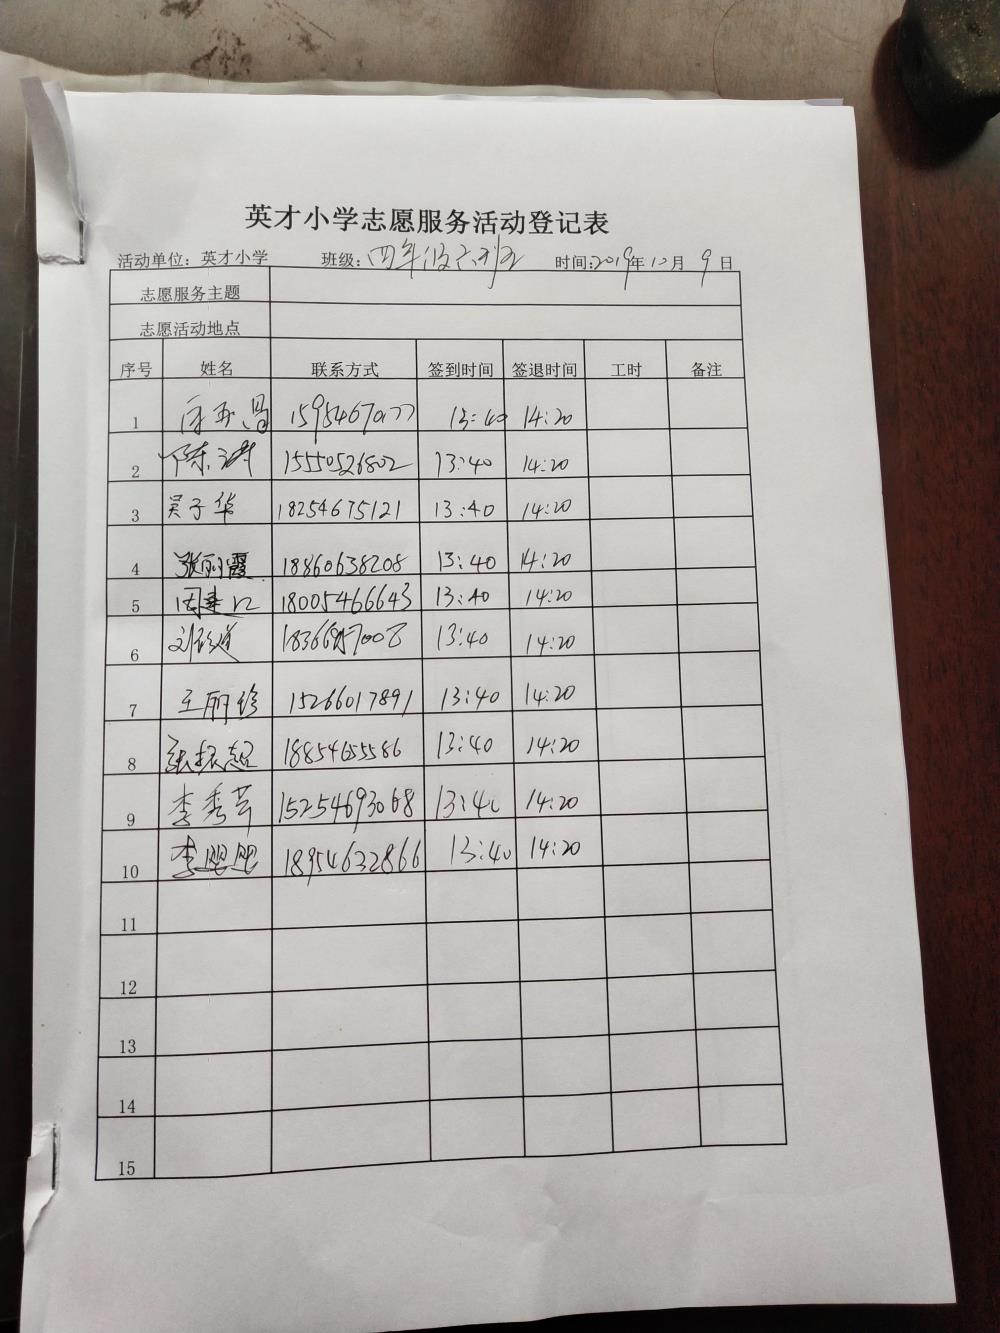 英才小学志愿服务活动登记表
活动单位：英才小学 班级：四年级六班 时间：2019年12月9日
志愿服务主题
志愿活动地点
序号 姓名 联系方式 签到时间 签退时间 工时 备注
1 13:40 14:20
2 陈涛 15550526802 13:40 14:20
3 吴子华 18254675121 13:40 14:20
4 张丽霞 18860638208 13:40 14:20
5 18005466643 13:40 14:20
6 13:40 14:20
7 王丽珍 15266017891 13:40 14:20
8 张振超 18854655586 13:40 14:20
9 李秀芸 15254693068 13:40 14:20
10 李 18954632866 13:40 14:20
11
12
13
14
15